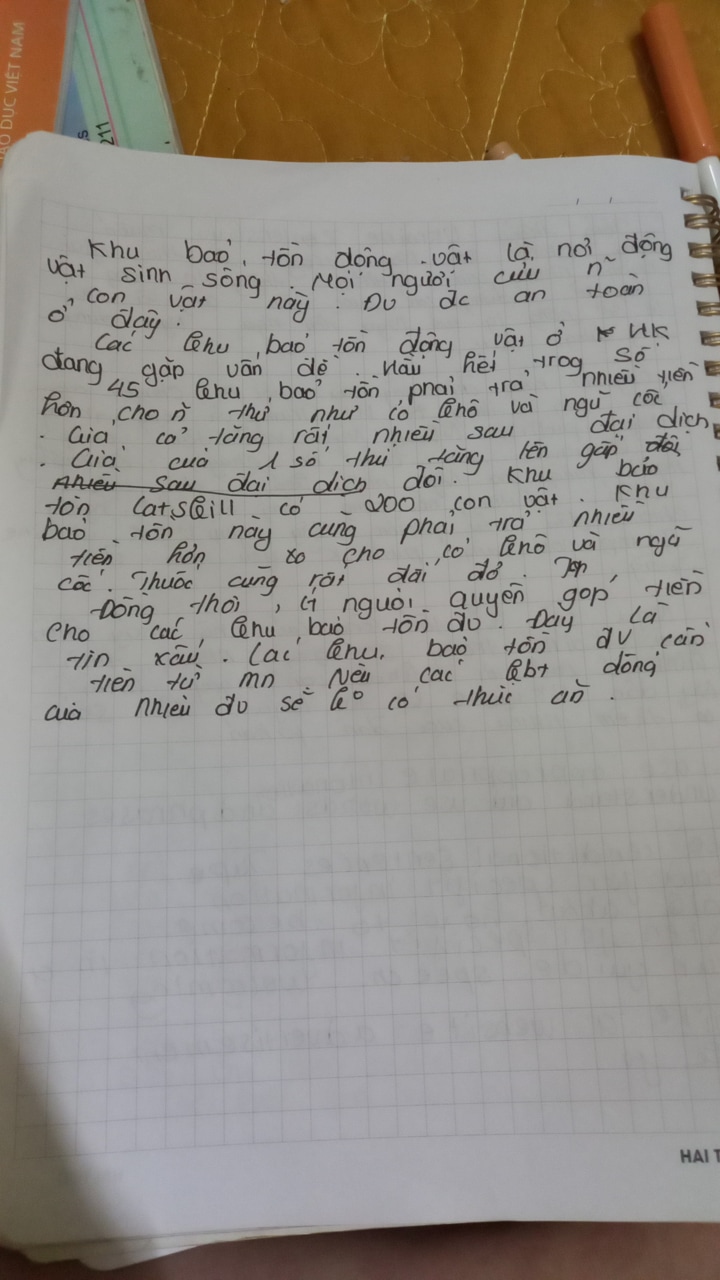 ÁO DỤC VIỆT NAM
211
Khu bảo tồn động vật là nơi động
vật sinh sống. Mọi người cứu n~
con vật này. Đv đc an toàn
ở đây.
Các khu bảo tồn động vật ở UK
đang gặp vấn đề. Hầu hết trog số
45 khu bảo tồn phải trả nhiều tiền
hơn cho n~ thứ như cỏ khô và ngũ cốc
. Giá cỏ tăng rất nhiều sau đại dịch
. Giá của 1 số thứ tăng lên gấp đôi
Nhiều sau đại dịch đôi. Khu bảo
tồn Catskill có 200 con vật. Khu
bảo tồn này cũng phải trả nhiều
tiền hơn to cho cỏ khô và ngũ
cốc. Thuốc cũng rất đắt đỏ.
Đồng thời, ít người quyên góp tiền
cho các khu bảo tồn đv. Đây là
tin xấu. Các khu bảo tồn đv cần
tiền từ mn. Nếu các kbt đóng
cửa nhiều đv sẽ ko có thức ăn.
HẢI T